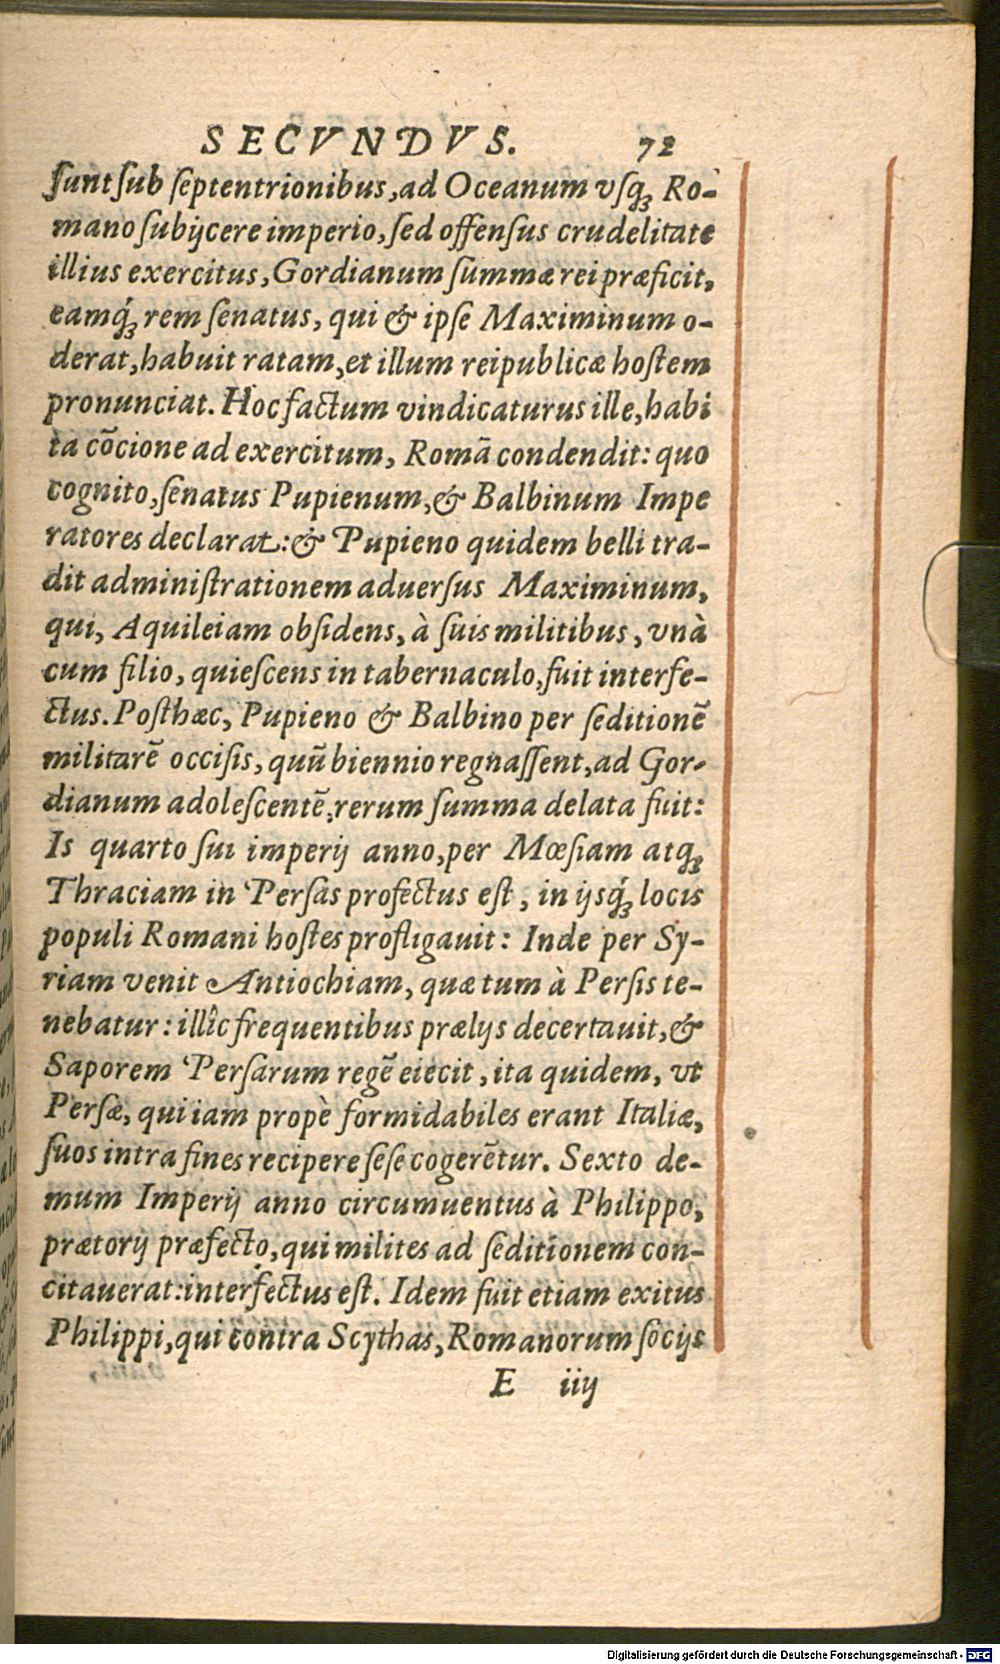 SECVNDVS. 72
ſunt ſub ſeptentrionibus, ad Oceanum vſqꝫ Ro-
mano ſubijcere imperio, ſed offenſus crudelitate
illius exercitus, Gordianum ſummæ rei præficit,
eamq́ꝫ rem ſenatus, qui & ipſe Maximinum o-
derat, habuit ratam, et illum reipublicæ hoſtem
pronunciat. Hoc factum vindicaturus ille, habi
ta cōcione ad exercitum, Romā condendit: quo
cognito, ſenatus Pupienum, & Balbinum Impe
ratores declarat: & Pupieno quidem belli tra-
dit adminiſtrationem aduerſus Maximinum,
qui, Aquileiam obſidens, à ſuis militibus, vnà
cum filio, quieſcens in tabernaculo, fuit interfe-
ctus. Poſthæc, Pupieno & Balbino per ſeditionē
militarē occiſis, quū biennio regnaſſent, ad Gor-
dianum adoleſcentē, rerum ſumma delata fuit:
Is quarto ſui imperij anno, per Mœſiam atqꝫ
Thraciam in Perſas profectus eſt, in ijsq́ꝫ locis
populi Romani hoſtes profligauit: Inde per Sy-
riam venit Antiochiam, quæ tum à Perſis te-
nebatur: illîc frequentibus prælijs decertauit, &
Saporem Perſarum regē eiecit, ita quidem, vt
Perſæ, qui iam propè formidabiles erant Italiæ,
ſuos intra fines recipere ſeſe cogerētur. Sexto de-
mum Imperij anno circumuentus à Philippo,
prætorij præfecto, qui milites ad ſeditionem con-
citauerat: interfectus eſt. Idem fuit etiam exitus
Philippi, qui contra Scythas, Romanorum ſocijs
E iiij
Digitalisierung gefördert durch die Deutsche Forschungsgemeinschaft - DFG